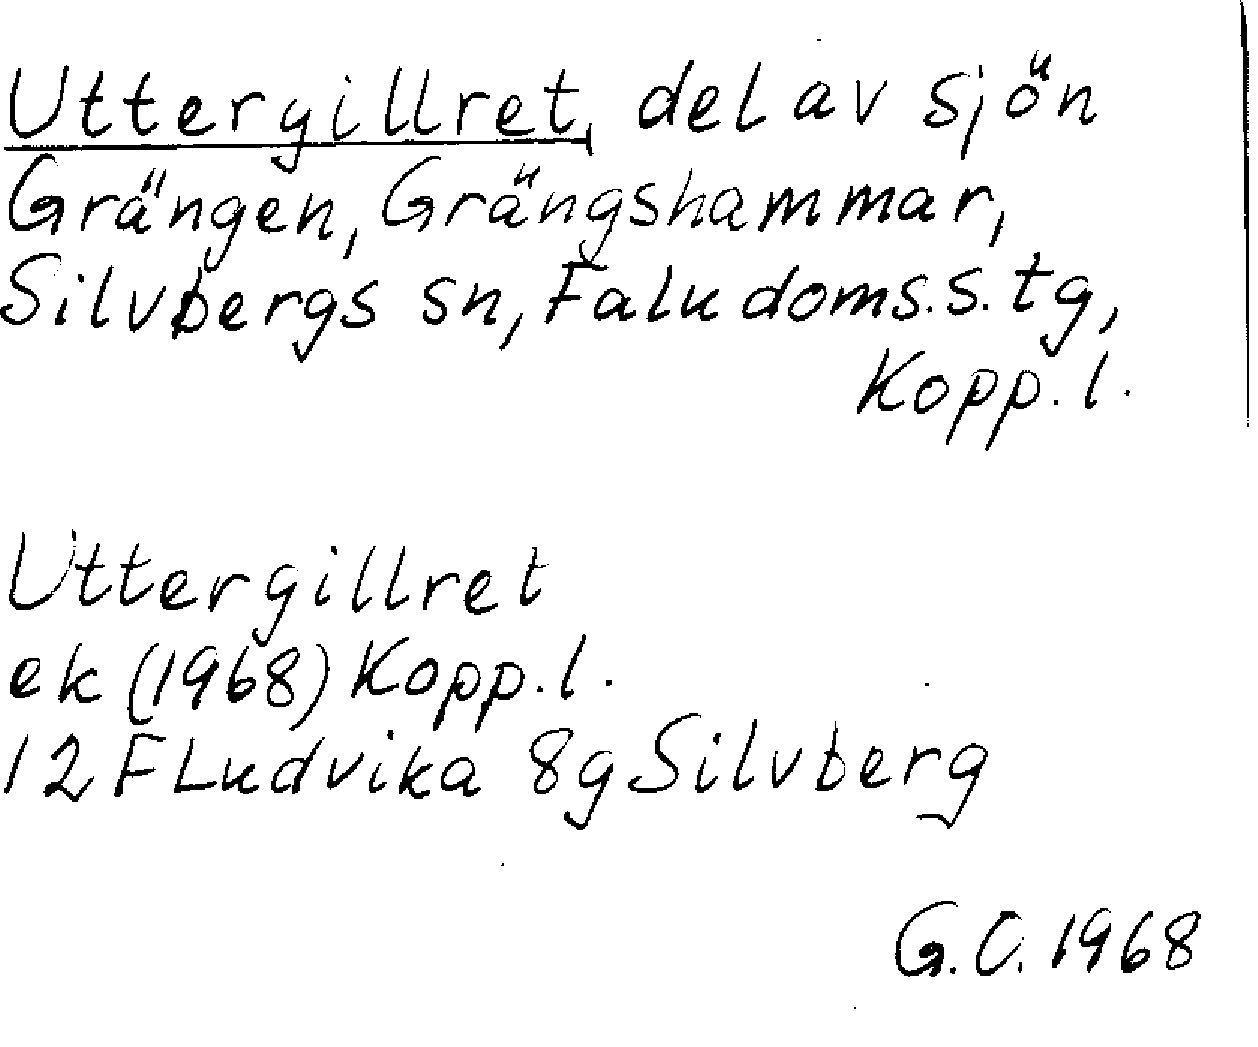 Uttergillret, del av sjön
Grängen, Grängshammar,
Silvbergs sn, Falu doms.s. tg,
Kopp. l.
Uttergillret
ek (1968) Kopp. l.
12 F Ludvika 8g Silvberg
G.O. 1968